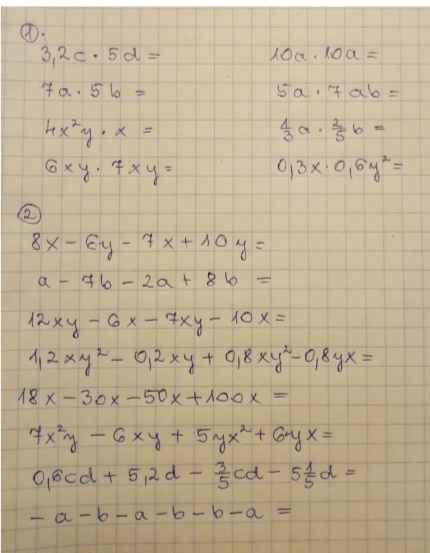 1.
3,2c · 5d = 10a · 10a =
7a · 5b = 5a · 7ab =
4x²y · x = 1/3 a · 2/5 b =
6xy · 7xy = 0,3x · 0,6y² =
2
8x - 6y - 7x + 10y =
a - 7b - 2a + 8b =
12xy - 6x - 7xy - 10x =
1,2xy² - 0,2xy + 0,8xy² - 0,8yx =
18x - 30x - 50x + 100x =
7x²y - 6xy + 5yx² + 6yx =
0,6cd + 5,2d - 3/5 cd - 5 1/5 d =
- a - b - a - b - b - a =